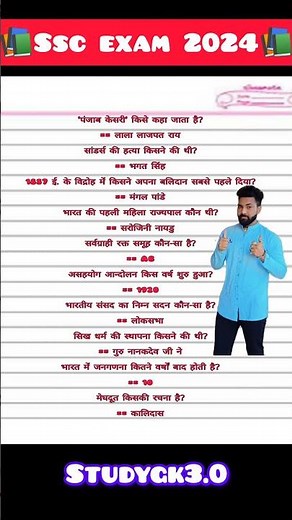 SSC EXAM 2024
'पंजाब केसरी' किसे कहा जाता है?
== लाला लाजपत राय
सांडर्स की हत्या किसने की थी?
== भगत सिंह
1857 ई. के विद्रोह में किसने अपना बलिदान सबसे पहले दिया?
== मंगल पांडे
भारत की पहली महिला राज्यपाल कौन थी?
== सरोजिनी नायडु
सर्वग्राही रक्त समूह कौन-सा है?
== AB
असहयोग आन्दोलन किस वर्ष शुरु हुआ?
== 1920
भारतीय संसद का निम्न सदन कौन-सा है?
== लोकसभा
सिख धर्म की स्थापना किसने की थी?
== गुरु नानकदेव जी ने
भारत में जनगणना कितने वर्षों बाद होती है?
== 10
मेघदूत किसकी रचना है?
== कालिदास
STUDYGK3.0